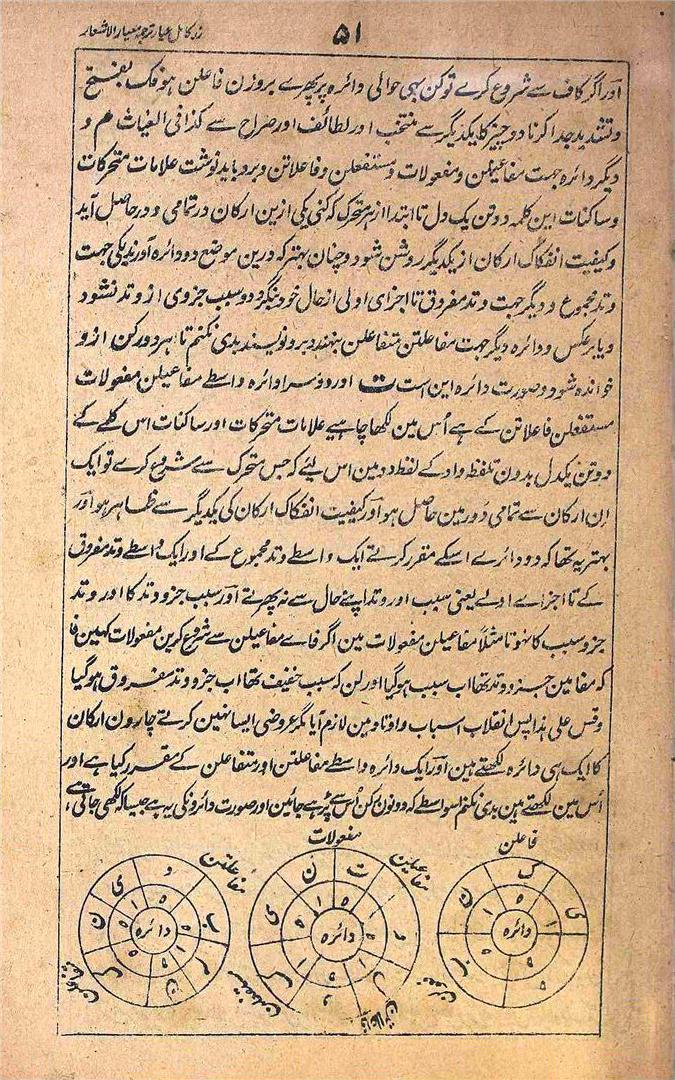 ۵۱
زر کامل عیار ترجمہ معیار الاشعار
اور اگر کاف سے شروع کرے تو کن بہی حوالی دائرہ پر پھرے بروزن فاعلن ہو فک بفتح
و تشدید جدا کرنا دو چیز کا یکدیگر سے منتخب اور لطائف اور صراح سے کذا فی الغیاث م و
دیگر دائرہ جہت مفاعیلن و مفعولات و مستفعلن و فاعلاتن و برو باید نوشت علامات متحرکات
و ساکنات این کلمہ دو تن یک دل تا ابتدا از ہر متحرک کہ کنی یکی ازین ارکان در تمامی دور حاصل آید
و کیفیت انفکاک ارکان از یکدیگر روشن شود و چنان بہتر کہ درین موضع دو دائرہ آورند یکی جہت
وتد مجموع و دیگر جہت وتد مفروق تا اجزای اولی از حال خود نگردد و سبب جزوی از وتد نشود
و یا بر عکس و دائرہ دیگر جہت مفاعلتن متفاعلن بنہند و برو نویسند بدی نکنم تا ہر دو رکن ازو
خواندہ شود و صورت دائرہ این است ت اور دوسرا دائرہ واسطے مفاعیلن مفعولات
مستفعلن فاعلاتن کے ہے اُس مین لکھا چاہیے علامات متحرکات اور ساکنات اس کلمے کے
دو تن یکدل بدون تلفظ واو کے لفظ دو مین اس لئے کہ جس متحرک سے شروع کرے تو ایک
اِن ارکان سے تمامی دَور مین حاصل ہو اور کیفیت انفکاک ارکان کی یکدیگر سے ظاہر ہو اور
بہتر یہ تھا کہ دو دائرے اسکے مقرر کرتے ایک واسطے وتد مجموع کے اور ایک واسطے وتد مفروق
کے تا اجزاے اولے یعنی سبب اور وتد اپنے حال سے نہ پھرتے اور سبب جزو وتد کا اور وتد
جزو سبب کا نہوتا مثلاً مفاعیلن مفعولات مین اگر فاے مفاعیلن سے شروع کرین مفعولات کہین فا
کہ مفا مین جزو وتد تھا اب سبب ہو گیا اور لن کہ سبب خفیف تھا اب جزو وتد مفروق ہو گیا
و قس علی ہذا پس انقلاب اسباب و اوتاد مین لازم آیا مگر عروضی ایسا نہین کرتے چارون ارکان
کا ایک ہی دائرہ لکھتے ہین اور ایک دائرہ واسطے مفاعلتن اور متفاعلن کے مقرر کیا ہے اور
اُس مین لکھتے ہین بدی نکنم اسواسطے کہ دونون رکن اُس سے پڑہے جائین اور صورت دائرونکی یہ ہے جیسا کہ لکھی جاتی ہے،
فاعلن
فعولن
ک
ی
ن
دائرہ
مفعولات
مفاعیلن
مستفعلن
فاعلاتن
ت
ن
ی
ک
د
ل
و
دائرہ
مفاعلتن
متفاعلن
د
ی
ن
ک
ن
م
ب
دائرہ